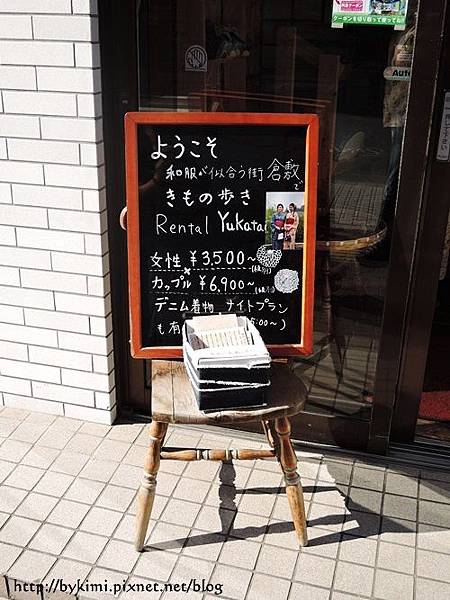 ようこそ
和服が似合う街 倉敷で
きもの歩き
Rental Yukata
女性 ¥3,500~
カップル ¥6,900~
デニム着物、ナイトプラン
も有
:00~)
Auto
http://bykimi.pixnet.net/blog